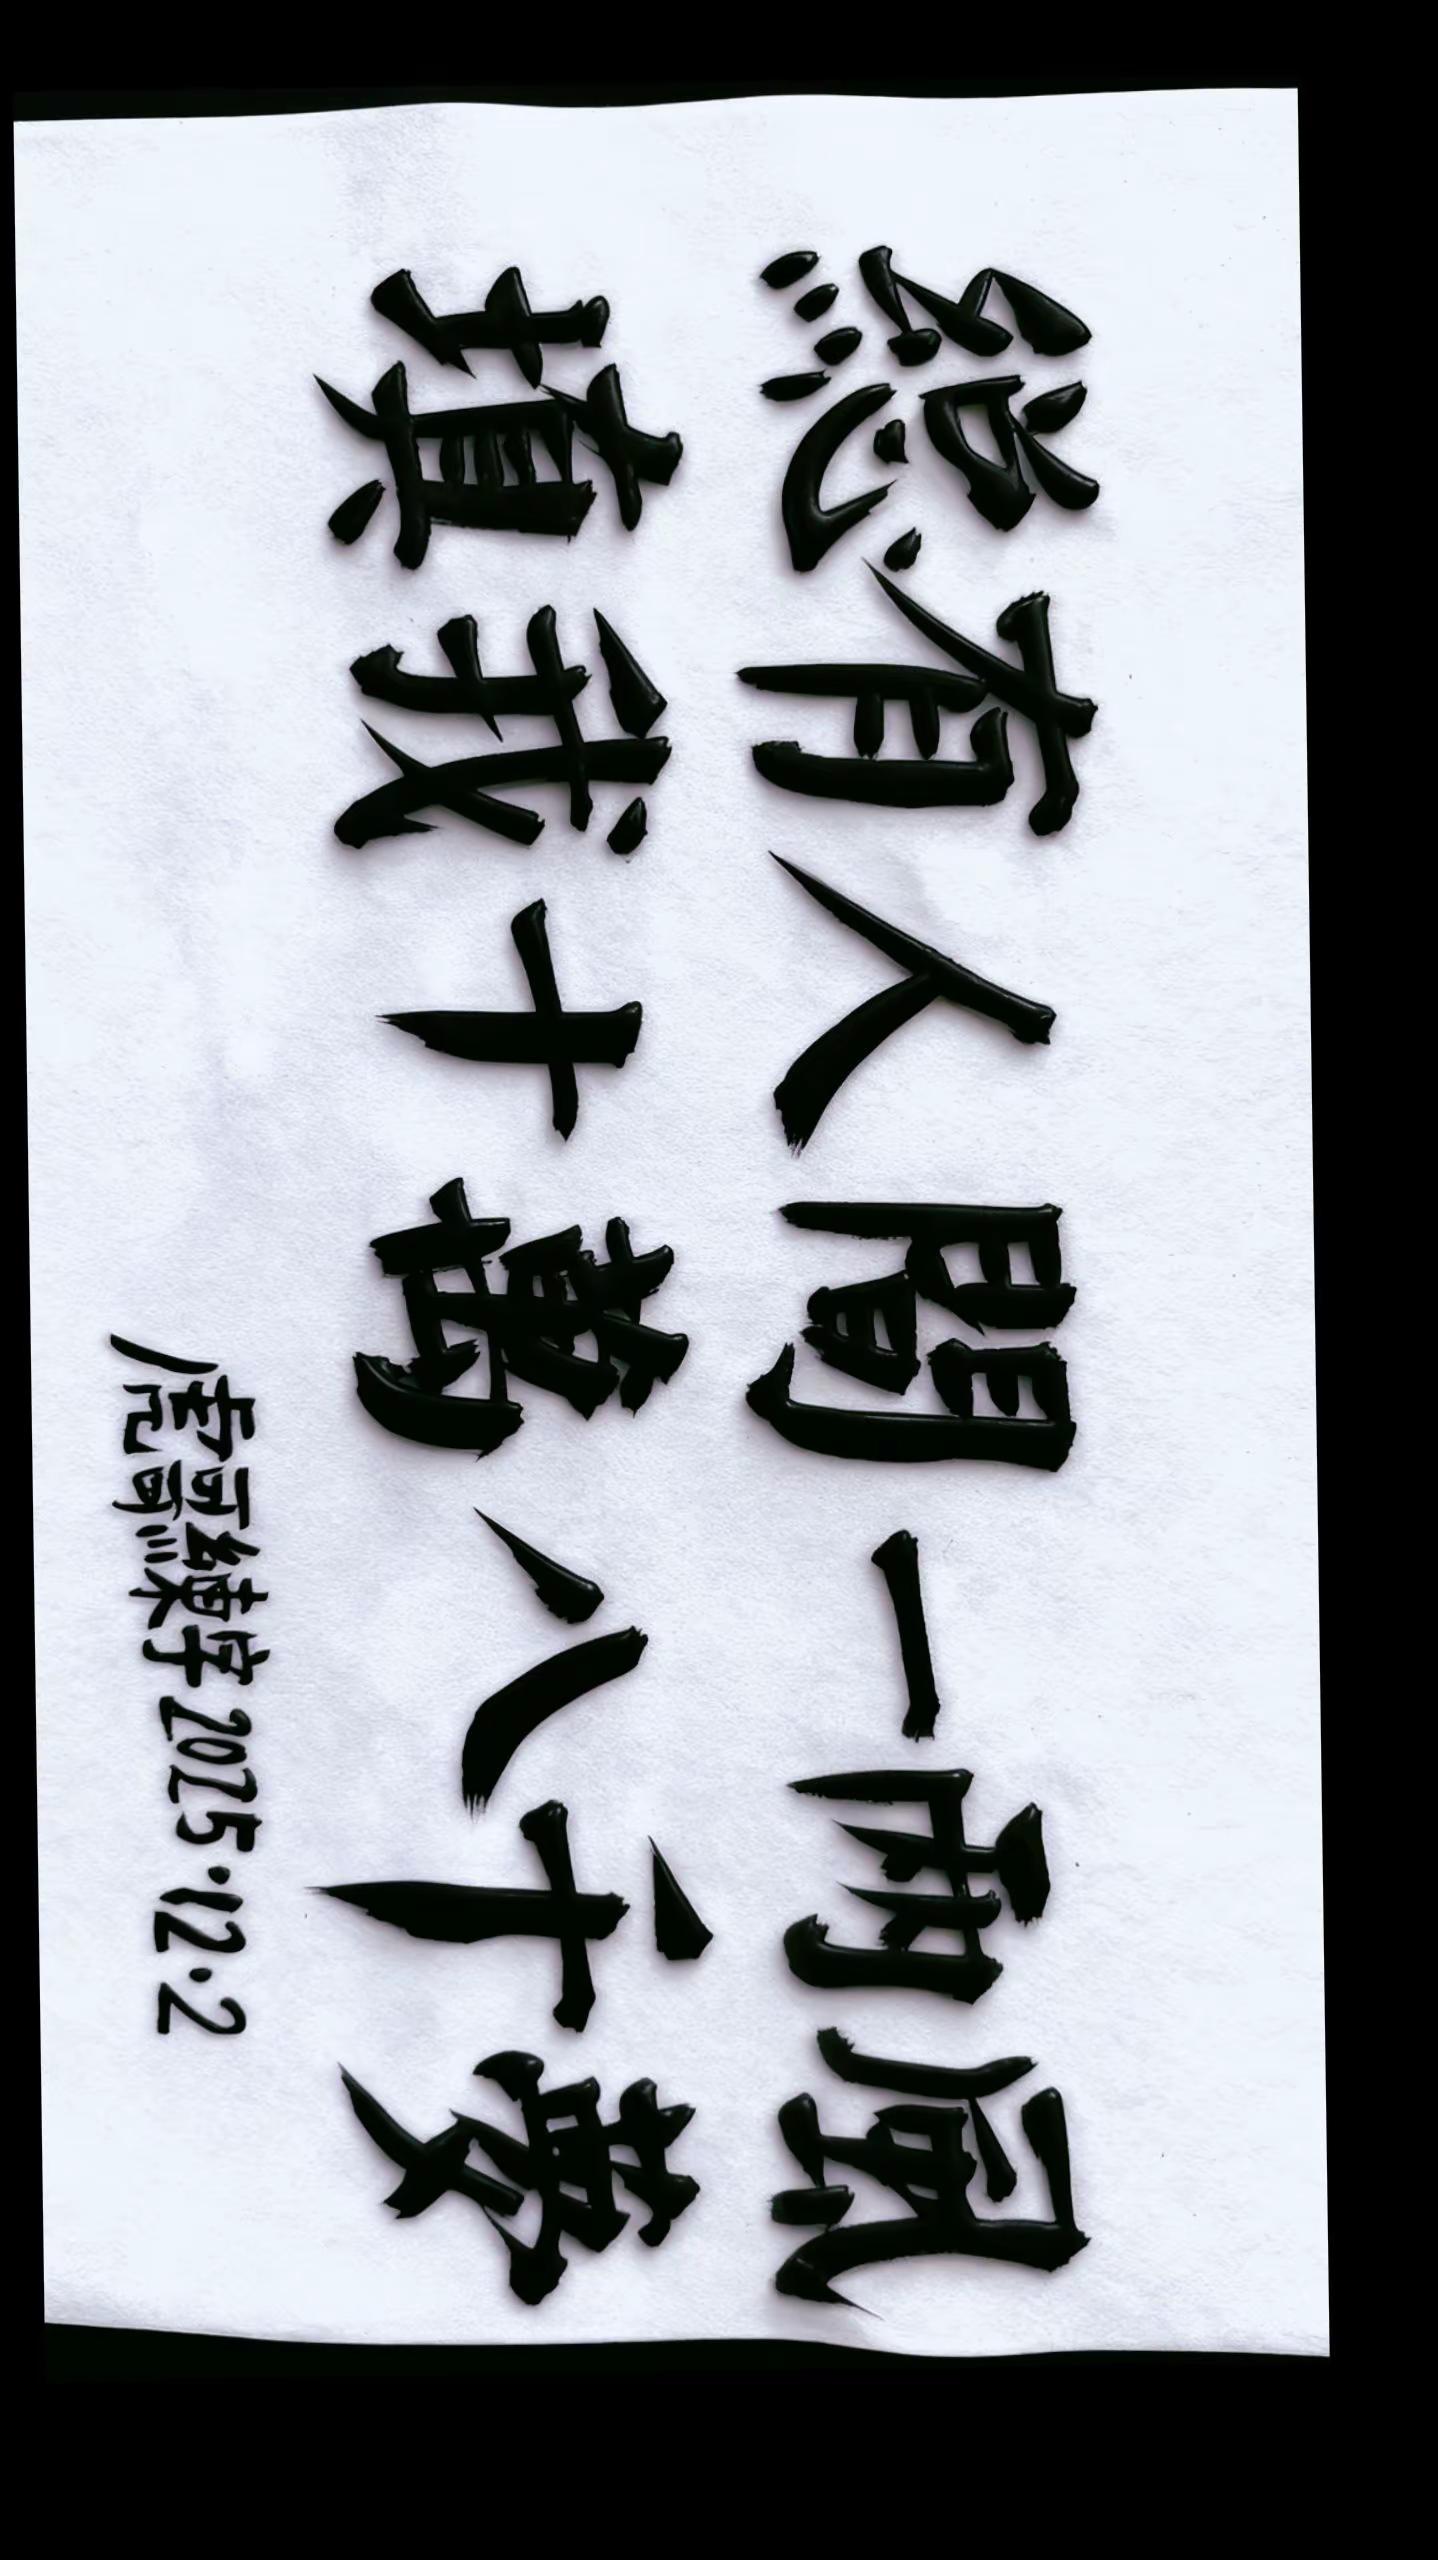 総有人間一兩風
填我十萬八千夢
虎哥練字 2025·12·2